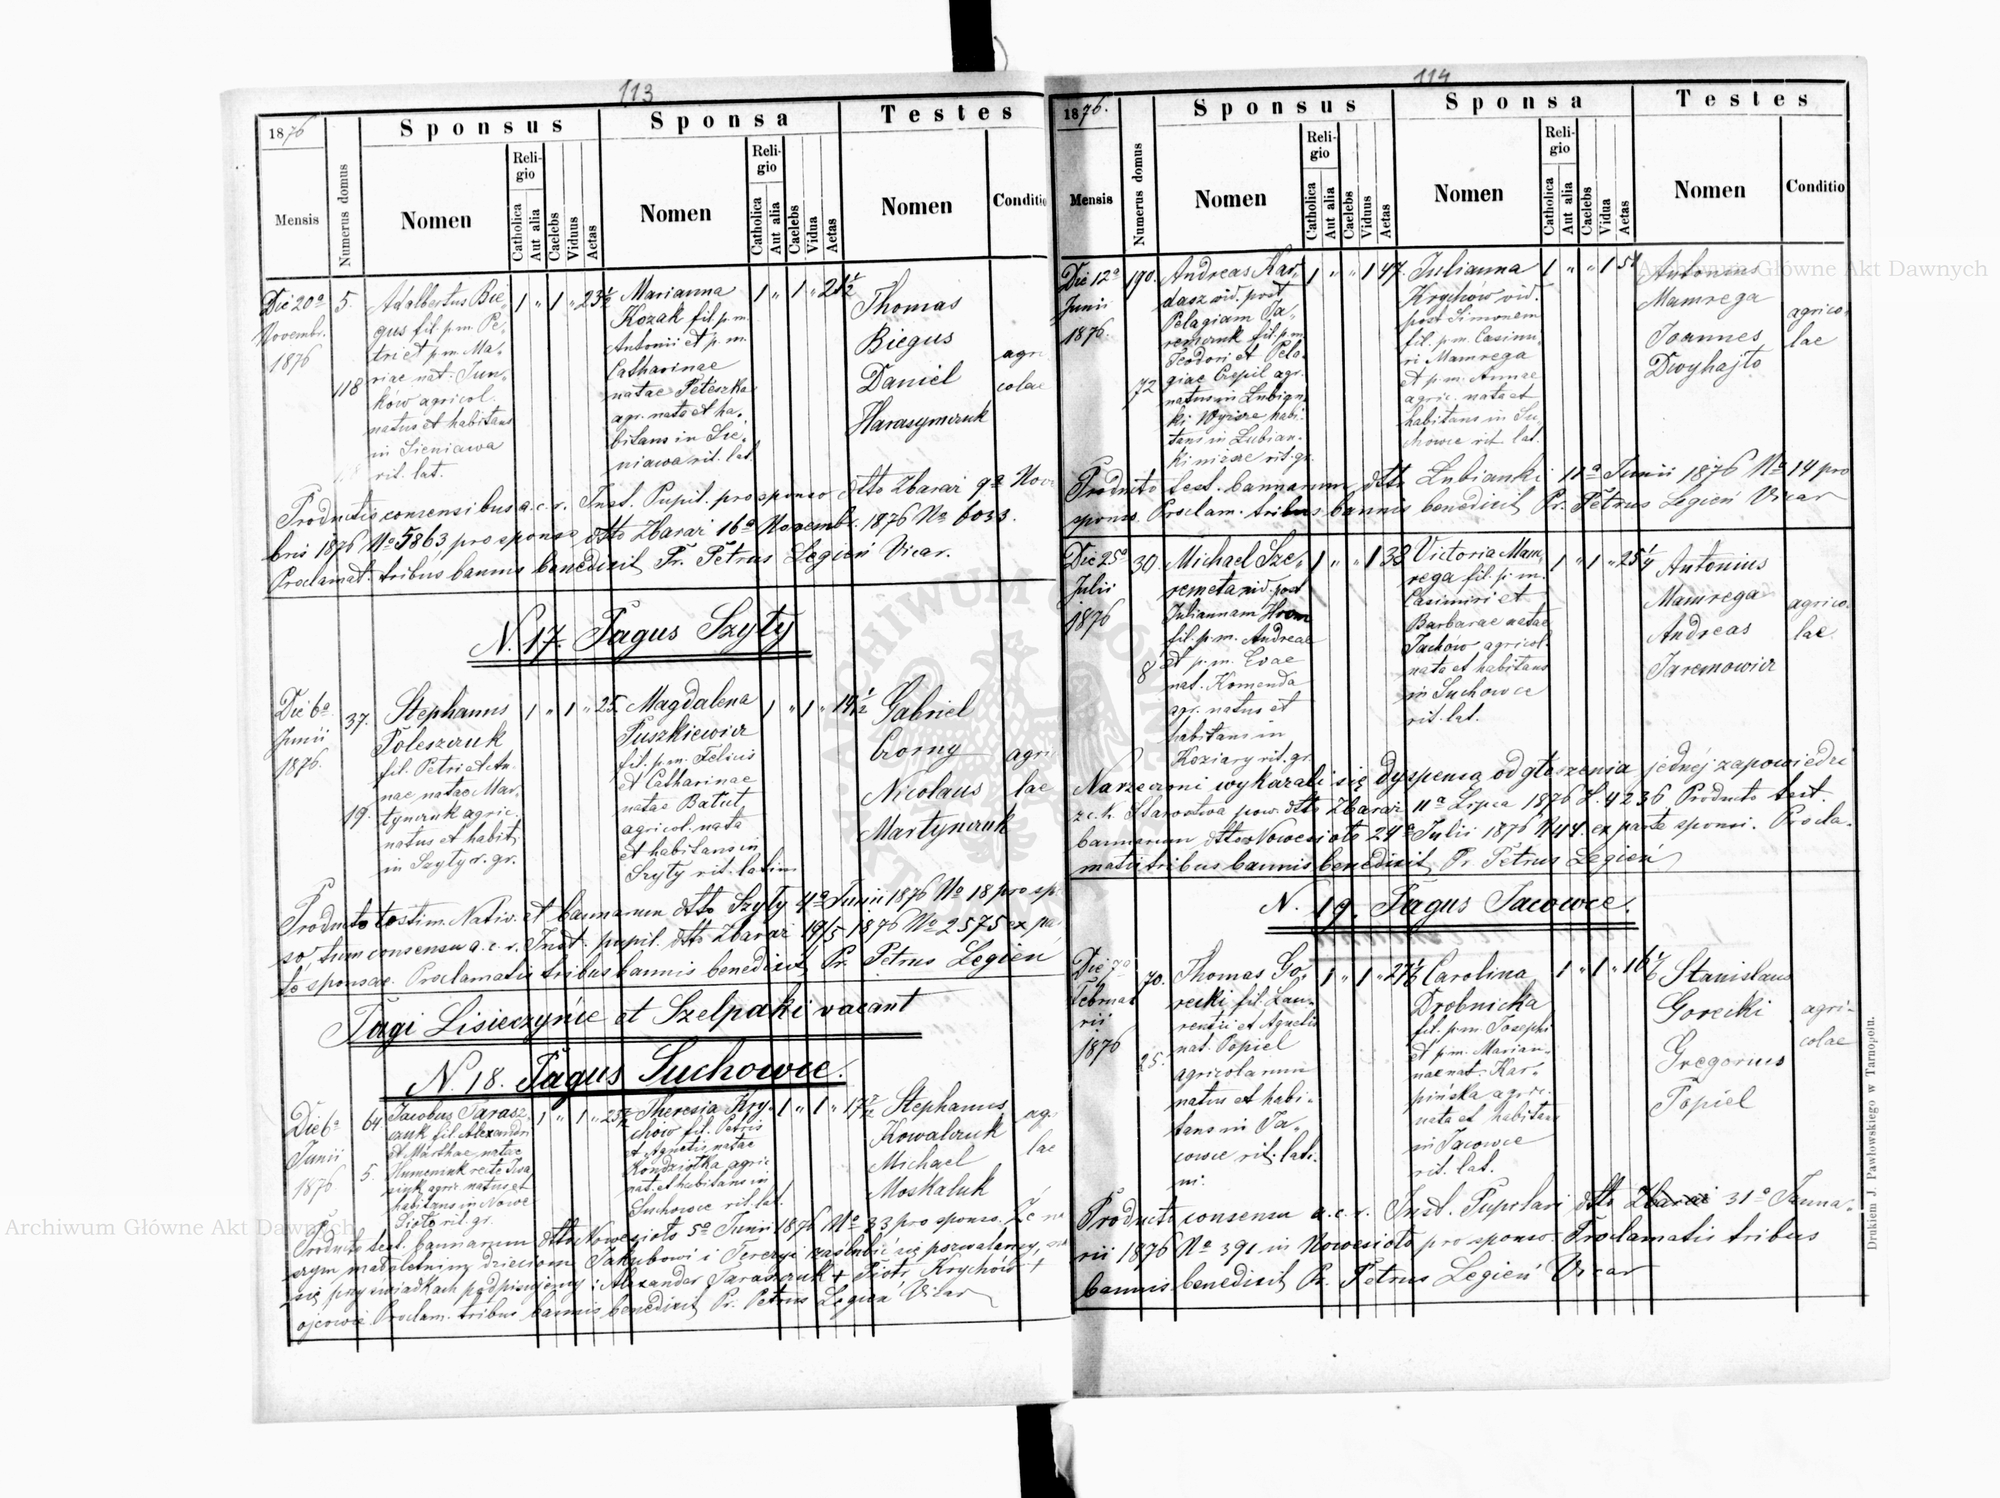 113
1876
Sponsus
Sponsa
Testes
Mensis
Numerus domus
Nomen
Religio
Catholica
Aut alia
Caelebs
Viduus
Aetas
Nomen
Religio
Catholica
Aut alia
Caelebs
Vidua
Aetas
Nomen
Conditio
Die 20a
Novembr.
1876
5.
118
Adalbertus Bie-
gus fil. p.m. Pe-
tri et p.m. Ma-
riae nat. Jun-
ków agricol.
natus et habitans
in Sieniawa
rit. lat.
1 „ 1 „ 23½
Marianna
Kozak fil. p.m.
Antonii et p.m.
Catharinae
natae Peteszka
agr. nata et ha-
bitans in Sie-
niawa rit. lat.
1 „ 1 „ 21½
Thomas
Biegus
Daniel
Harasymczuk
agri
colae
Productis consensibus a.c.r. Inst. Pupil. pro sponso dtto Zbaraż 9a Nove
bris 1876 No 5863 pro sponsa dtto Zbaraż 16a Novembr. 1876 No 6033.
Proclamat. tribus bannis benedixit Fr. Petrus Legień Vicar.
N. 17. Pagus Szyty
Die 6a
Junii
1876.
37.
19.
Stephanus
Poleszczuk
fil. Petri et An-
nae natae Mar-
tynczuk agric.
natus et habit.
in Szyty r. gr.
1 „ 1 „ 25
Magdalena
Puszkiewicz
fil. p.m. Felicis
et Catharinae
natae Batut
agricol. nata
et habitans in
Szyty rit. latin.
1 „ 1 „
Gabriel
Czorny
Nicolaus
Martynczuk
agri
lae
Producto testim. Nativ. et bannorum dtto Szyty 4a Junii 1876 No 18 pro spon
so, tum consensu a.c.r. Inst. pupil. dtto Zbaraż 19/5 1876 No 2575 ex par
te sponsae. Proclamatis tribus bannis benedixit Pr. Petrus Legień
Pagi Lisieczyńce et Szelpaki vacant
N. 18. Pagus Suchowce.
Die 6a
Junii
1876
64
5.
Jacobus Tarasz-
czuk fil. Alexandri
et Marthae natae
Humeniuk recte Iwa
siuk agric. natus et
habitans in Nowe
Sioło rit. gr.
1 „ 1 „
Theresia Kry-
chów fil. Petri
et Agnetis natae
Kondziołka agric.
nat. et habitans in
Suchowce rit. lat.
1 „ 1 „
Stephanus
Kowalczuk
Michael
Moskaluk
agr
lae
Producto test. bannorum dtto Nowesioło 5a Junii 1876 No 33 pro sponso. Że na
szym małoletnim dzieciom Jakubowi i Terezyi zaślubić się pozwalamy,
się przy świadkach podpisujemy: Alexander Taraszczuk + Piotr Krychów +
ojcowie. Proclam. tribus bannis benedixit Pr. Petrus Legień Vicar
114
1876.
Sponsus
Sponsa
Testes
Mensis
Numerus domus
Nomen
Religio
Catholica
Aut alia
Caelebs
Viduus
Aetas
Nomen
Religio
Catholica
Aut alia
Caelebs
Vidua
Aetas
Nomen
Conditio
Die 12a
Junii
1876.
190.
72
Andreas Kar-
dasz vid. post
Pelagiam Ja-
remczuk fil. p.m.
Teodori et Pela-
giae Czepil agr.
natus in Łubian-
ki Wyższe habi-
tans in Łubian-
ki niższe rit. gr.
1 „ „ 1 47
Julianna
Krychów vid.
post Simonem
fil. p.m. Casimi-
ri Mamrega
et p.m. Annae
agric. nata et
habitans in Su-
chowce rit. lat.
1 „ „ 1 51
Antonius
Mamrega
Joannes
Dwyhajło
agrico-
lae
Producto test. bannorum dtto Łubianki 11a Junii 1876 No 14 pro
sponso. Proclam. tribus bannis benedixit Pr. Petrus Legień Vicar
Die 25a
Julii
1876
30.
8
Michael Sze-
remeta vid. post
Juliannam Hrom
fil. p.m. Andreae
et p.m. Evae
nat. Komenda
agr. natus et
habitans in
Koziary rit. gr.
1 „ „ 1 38
Victoria Mam-
rega fil. p.m.
Casimiri et
Barbarae natae
Jachów agricol.
nata et habitans
in Suchowce
rit. lat.
1 „ 1 „ 25¼
Antonius
Mamrega
Andreas
Jaremowicz
agrico-
lae
Narzeczeni wykazali się dyspensą od głoszenia jednéj zapowiedzi
z c.k. Starostwa pow. dtto Zbaraż 11a Lipca 1876 L. 4236 Producto test.
bannorum dtto Nowesioło 24a Julii 1876 N44. ex parte sponsi. Procla-
matis tribus bannis benedixit Pr. Petrus Legień
N. 19. Pagus Jacowce.
Die 7a
Februa
rii
1876
70.
25.
Thomas Go-
recki fil. Lau-
rentii et Agnetis
nat. Popiel
agricolarum
natus et habi-
tans in Ja-
cowce rit. lati-
ni.
1 „ 1 „
Carolina
Drobnicka
fil. p.m. Josephi
et p.m. Marian-
nae nat. Kar-
pińska agric.
nata et habitans
in Jacowce
rit. lat.
1 „ 1 „
Stanislaus
Gorecki
Gregorius
Popiel
agri-
colae
Producti consensu a.c.r. Inst. Pupilari dtto Zbaraż 31a Janua-
rii 1876 No 391 in Nowesioło pro sponso. Proclamatis tribus
bannis benedixit Pr. Petrus Legień Vicar
Drukiem J. Pawłowskiego w Tarnopolu.
Archiwum Główne Akt Dawnych
Archiwum Główne Akt Dawnych